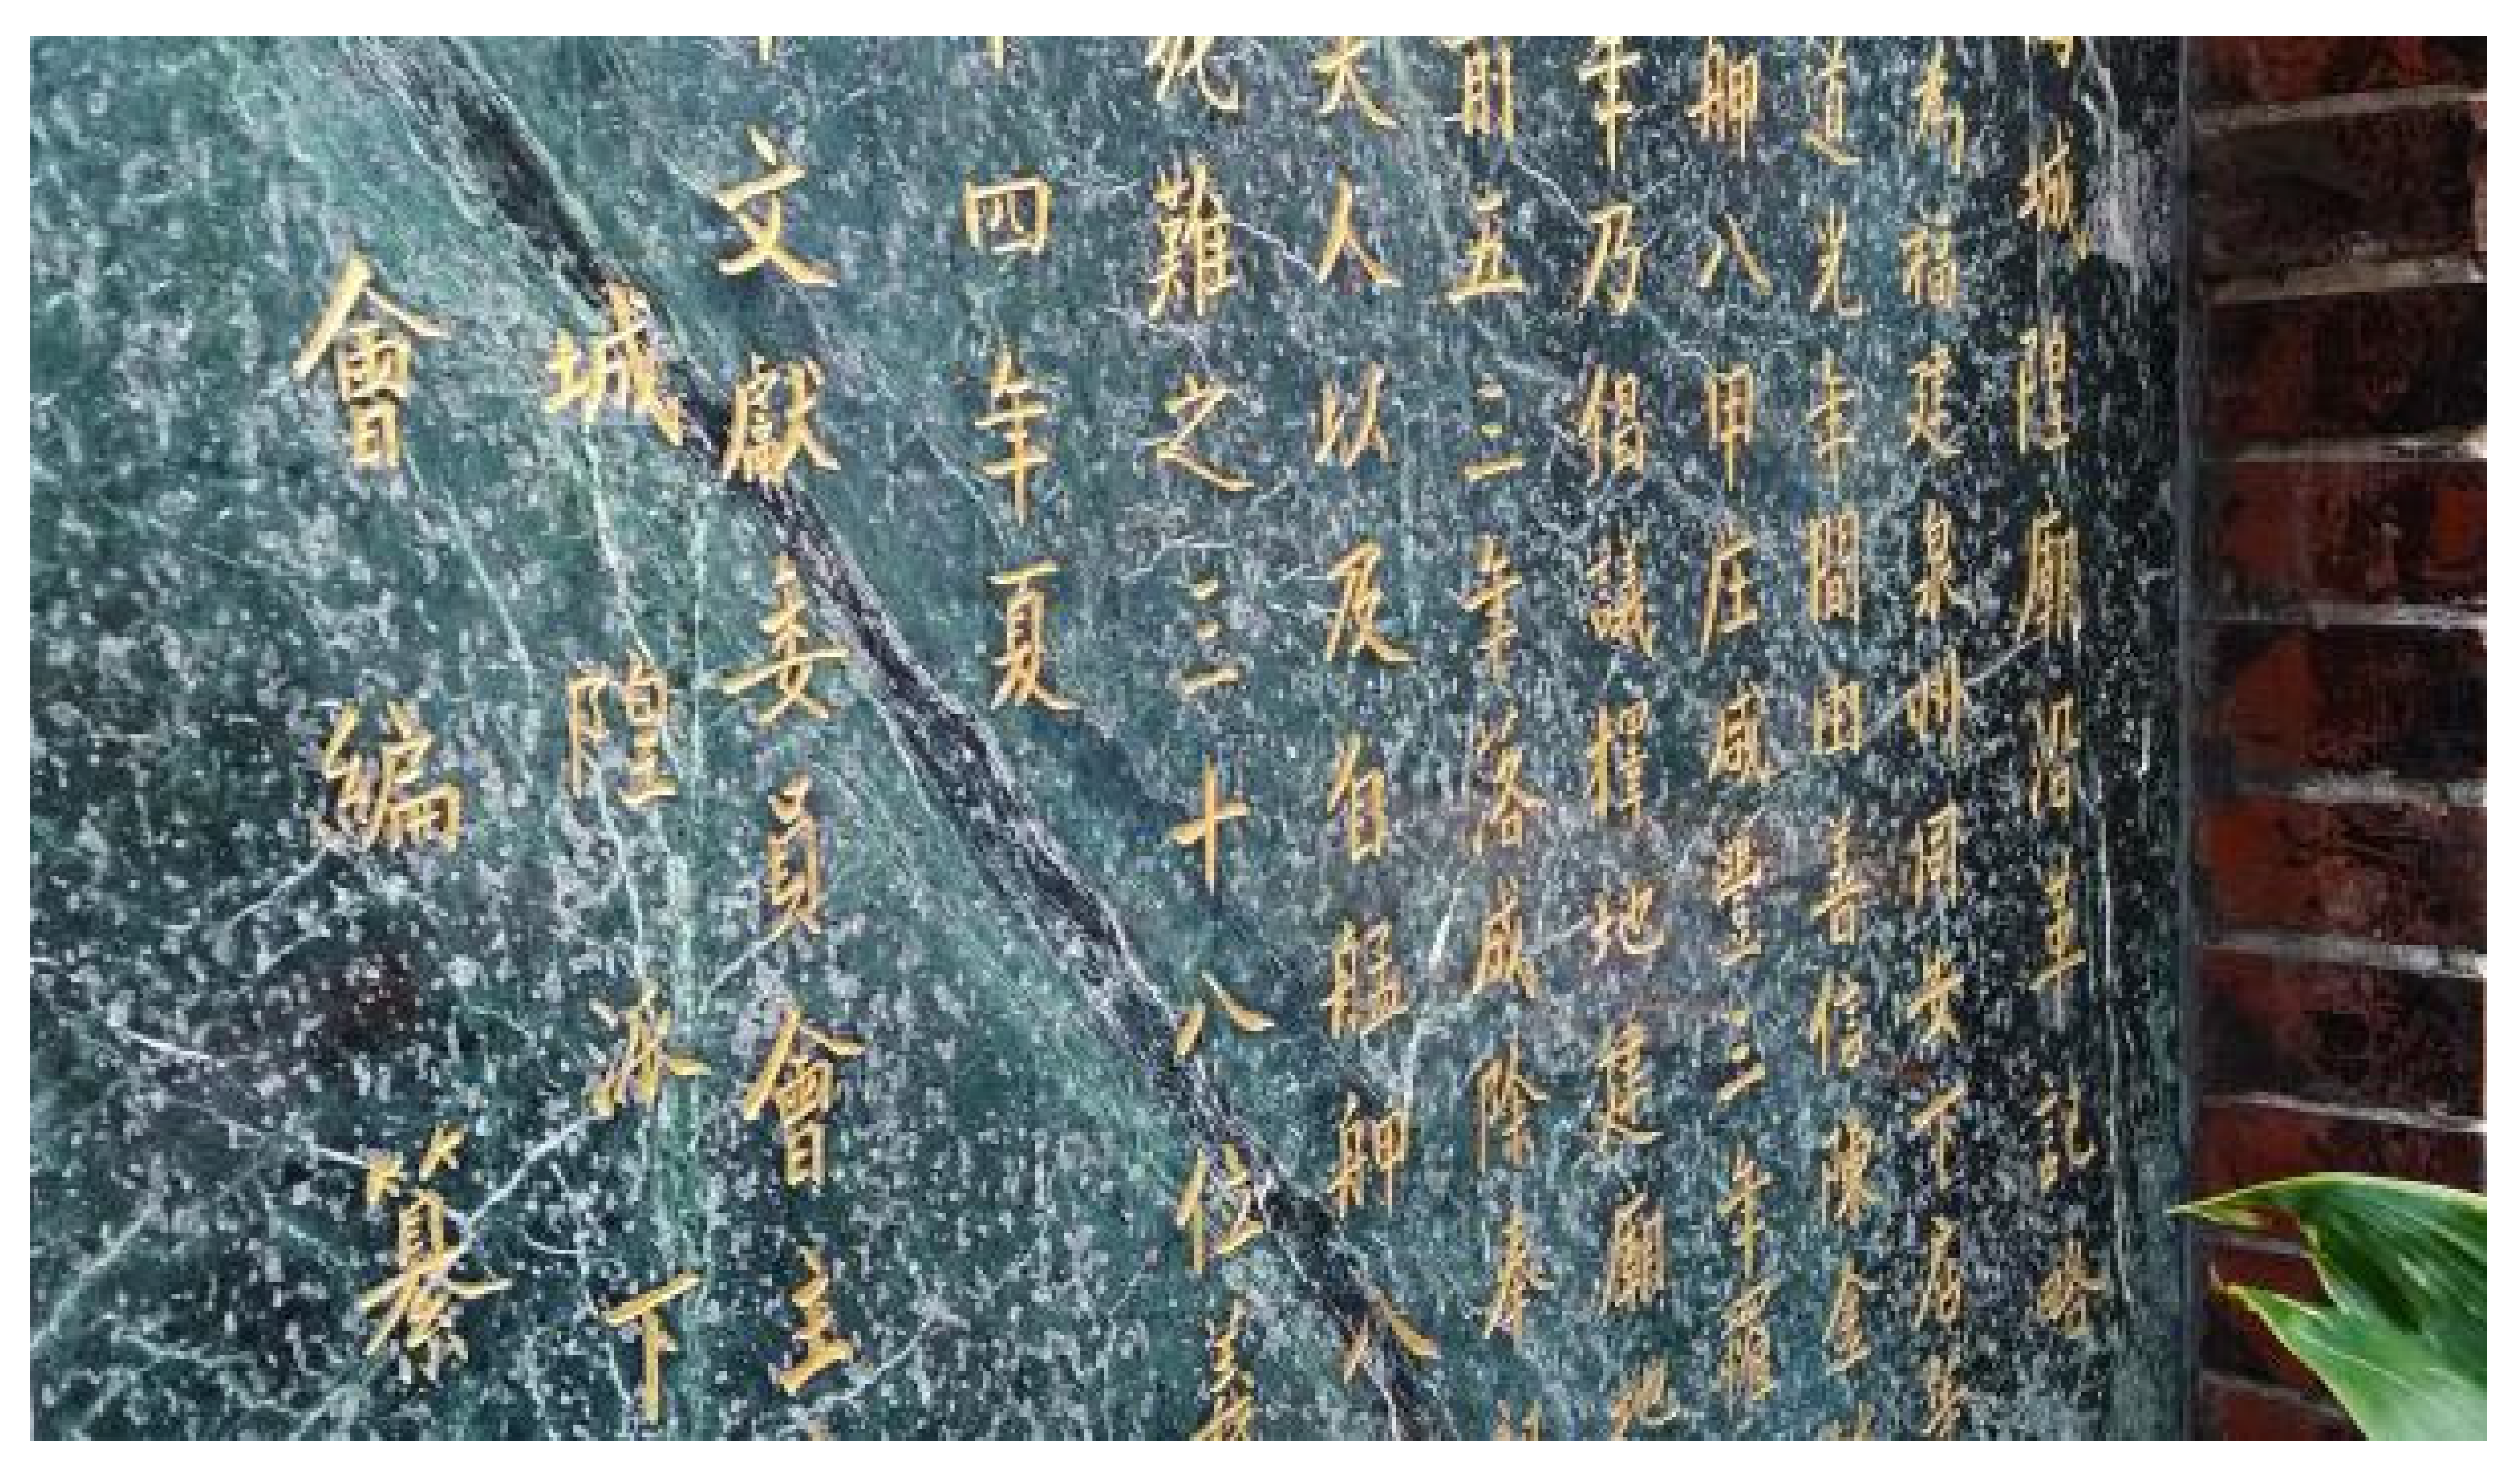 城隍廟沿革記略
為福建泉州同安下店
道光年間由善信陳金
艋舺八甲庄咸豐三年羅
年乃倡議擇地建廟地
前五三年落成除奉
夫人以及自艋舺八
難之三十八位義
四年夏
文獻委員會主
城隍派下
會編纂